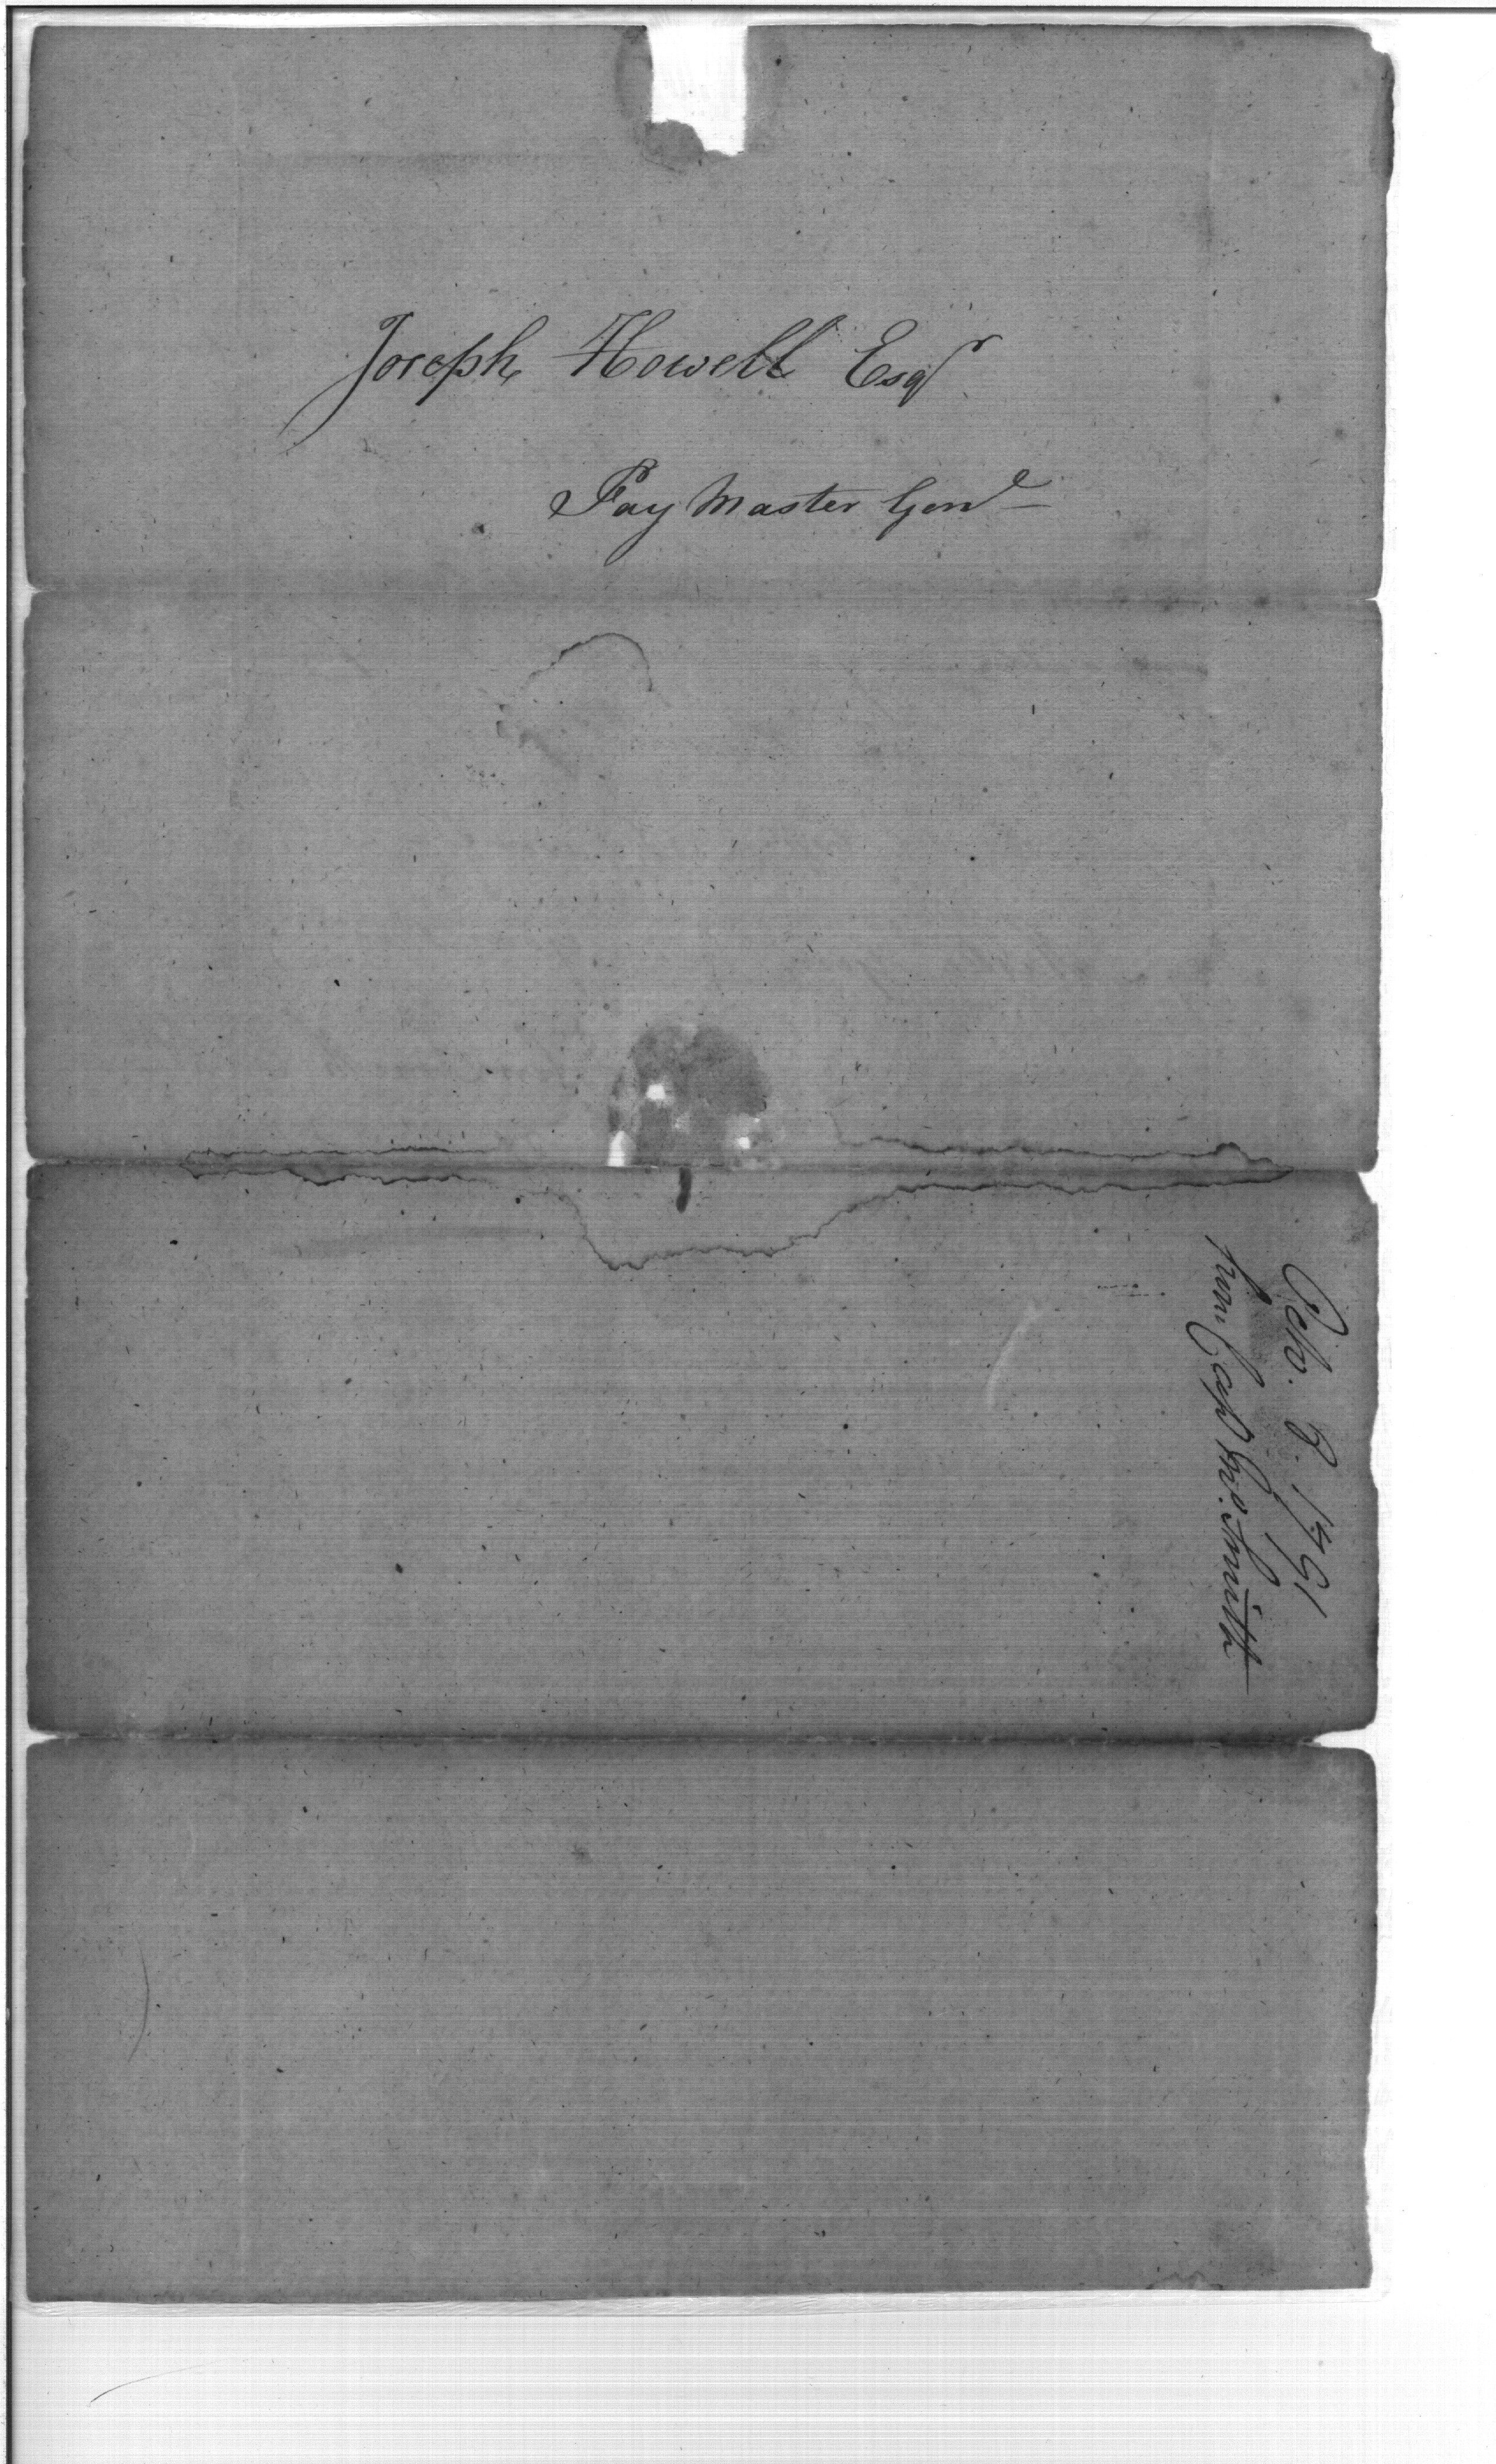 Joseph Howell Esqr
Pay Master Genl
Octo. 8. 1791
from Capt Jno. Smith